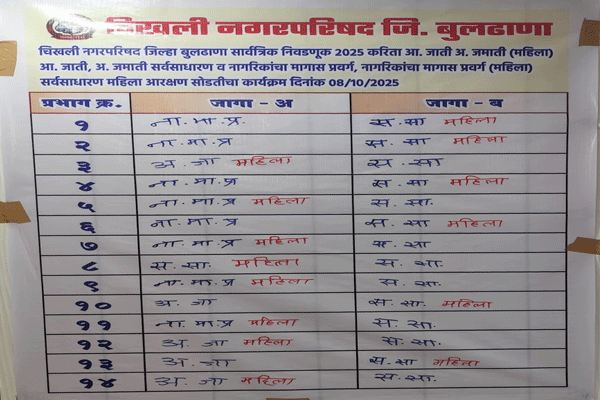 चिखली नगरपरिषद जि. बुलढाणा
चिखली नगरपरिषद जिल्हा बुलढाणा सार्वत्रिक निवडणूक 2025 करिता आ. जाती अ. जमाती (महिला)
आ. जाती, अ. जमाती सर्वसाधारण व नागरिकांचा मागास प्रवर्ग, नागरिकांचा मागास प्रवर्ग (महिला)
सर्वसाधारण महिला आरक्षण सोडतीचा कार्यक्रम दिनांक 08/10/2025
प्रभाग क्र. जागा - अ जागा - ब
१ ना. मा. प्र. स. सा महिला
२ ना. मा. प्र स. सा महिला
३ अ. जा महिला स. सा
४ ना. मा. प्र स. सा महिला
५ ना. मा. प्र महिला स. सा.
६ ना. मा. प्र स. सा महिला
७ ना. मा. प्र महिला स. सा
८ स. सा. महिला स. सा.
९ ना. मा. प्र महिला स. सा.
१० अ. जा स. सा. महिला
११ ना. मा. प्र महिला स. सा.
१२ अ. जा महिला स. सा.
१३ अ. जा स. सा महिला
१४ अ. जा महिला स. सा.